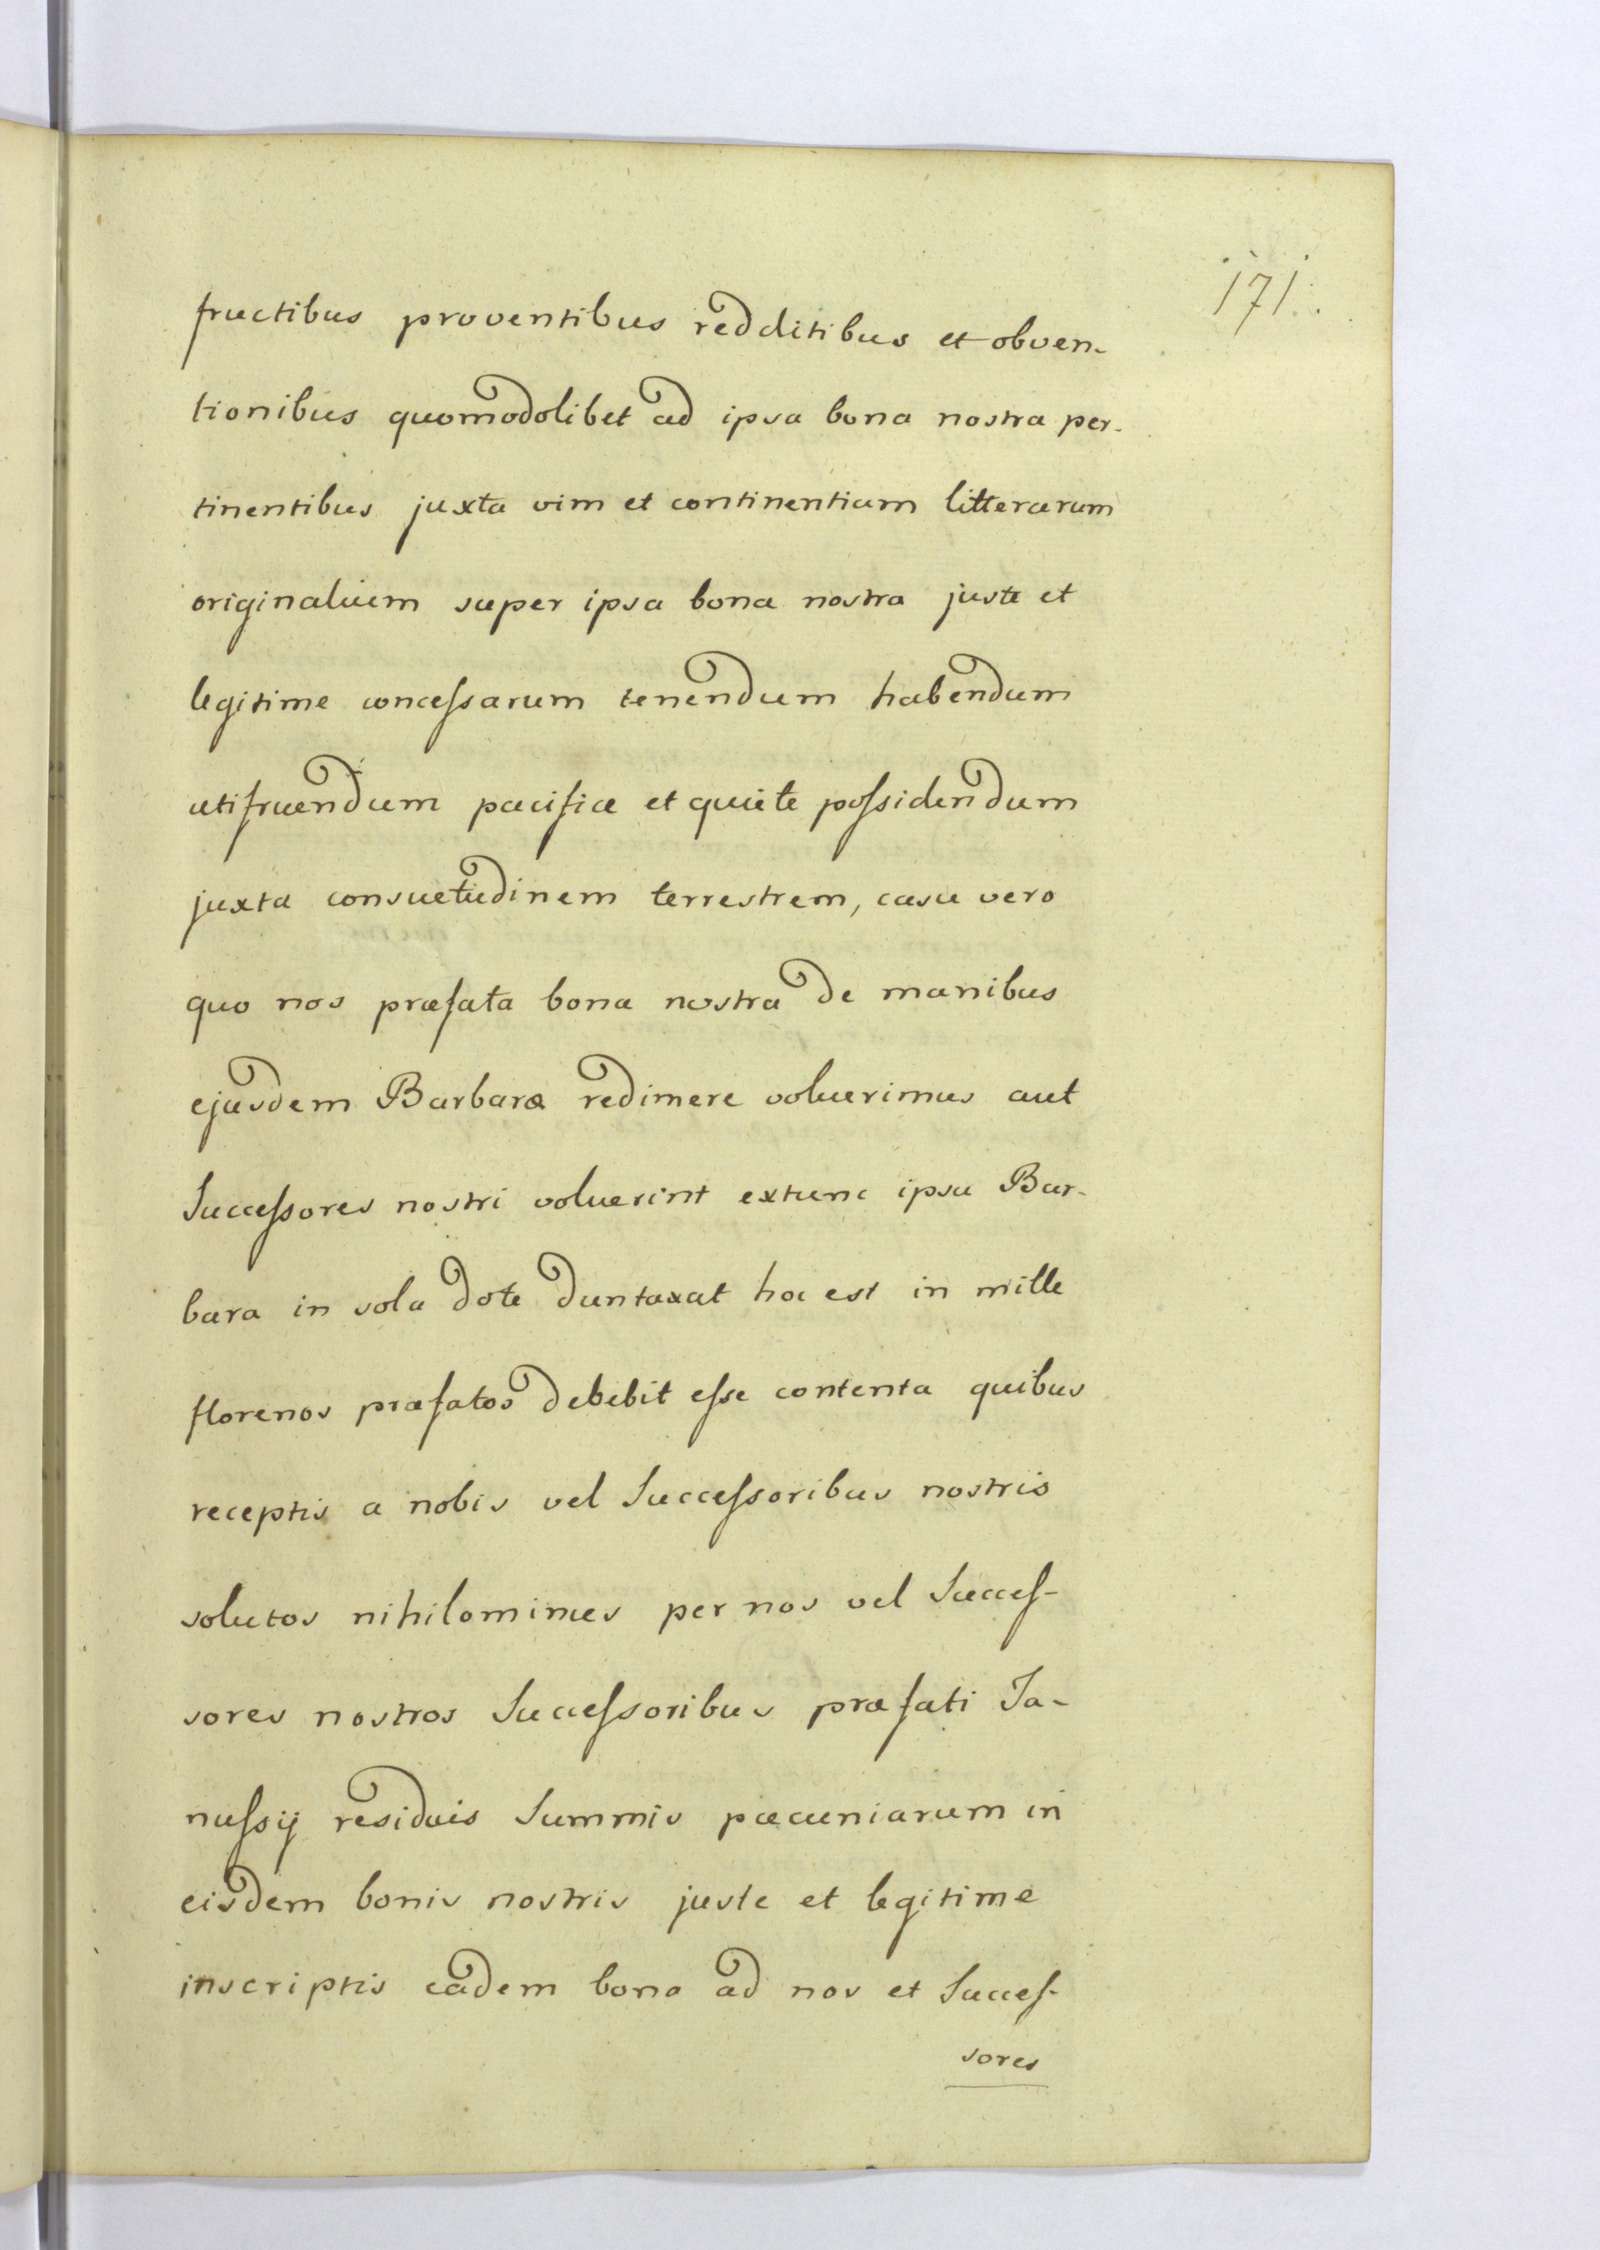 171.
fructibus proventibus redditibus et obven-
tionibus quomodolibet ad ipsa bona nostra per-
tinentibus juxta vim et continentiam litterarum
originalium super ipsa bona nostra juste et
legitime concessarum tenendum habendum
utifruendum pacifice et quiete possidendum
juxta consuetudinem terrestrem, casu vero
quo nos præfata bona nostra de manibus
ejusdem Barbaræ redimere voluerimus aut
Successores nostri voluerint extunc ipsa Bar-
bara in sola dote duntaxat hoc est in mille
florenos præfatos debebit esse contenta quibus
receptis a nobis vel Successoribus nostris
solutos nihilominus per nos vel Succes-
sores nostros Successoribus præfati Ja-
nussij residuis Summis pæcuniarum in
eisdem bonis nostris juste et legitime
inscriptis eadem bona ad nos et Succes-
sores